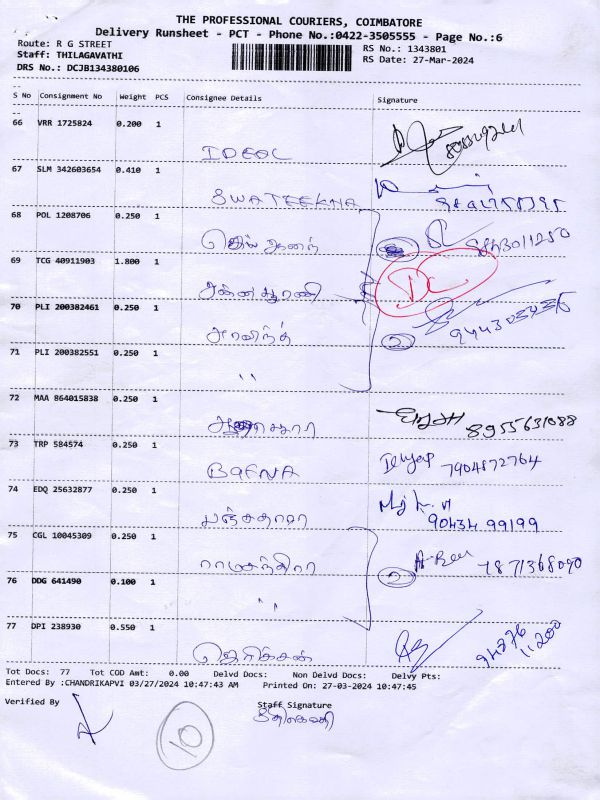 THE PROFESSIONAL COURIERS, COIMBATORE
Delivery Runsheet - PCT - Phone No.:0422-3505555 - Page No.:6
Route: R G STREET RS No.: 1343801
Staff: THILAGAVATHI RS Date: 27-Mar-2024
DRS No.: DCJB134380106
S No Consignment No Weight PCS Consignee Details Signature
66 VRR 1725824 0.200 1
IDEOL
67 SLM 342603654 0.410 1
SWATEEKNA
68 POL 1208706 0.250 1
9843011250
69 TCG 40911903 1.800 1
அன்னபூரணி
70 PLI 200382461 0.250 1
அரவிந்த் 2
71 PLI 200382551 0.250 1
"
72 MAA 864015838 0.250 1
8955631088
73 TRP 584574 0.250 1
BAFNA 7904872764
74 EDQ 25632877 0.250 1
90434 99199
75 CGL 10045309 0.250 1
ராமசந்திரா 7871368090
76 DDG 641490 0.100 1
" 2
77 DPI 238930 0.550 1
94876 11200
Tot Docs: 77 Tot COD Amt: 0.00 Delvd Docs: Non Delvd Docs: Delvy Pts:
Entered By :CHANDRIKAPVI 03/27/2024 10:47:43 AM Printed On: 27-03-2024 10:47:45
Verified By Staff Signature
10